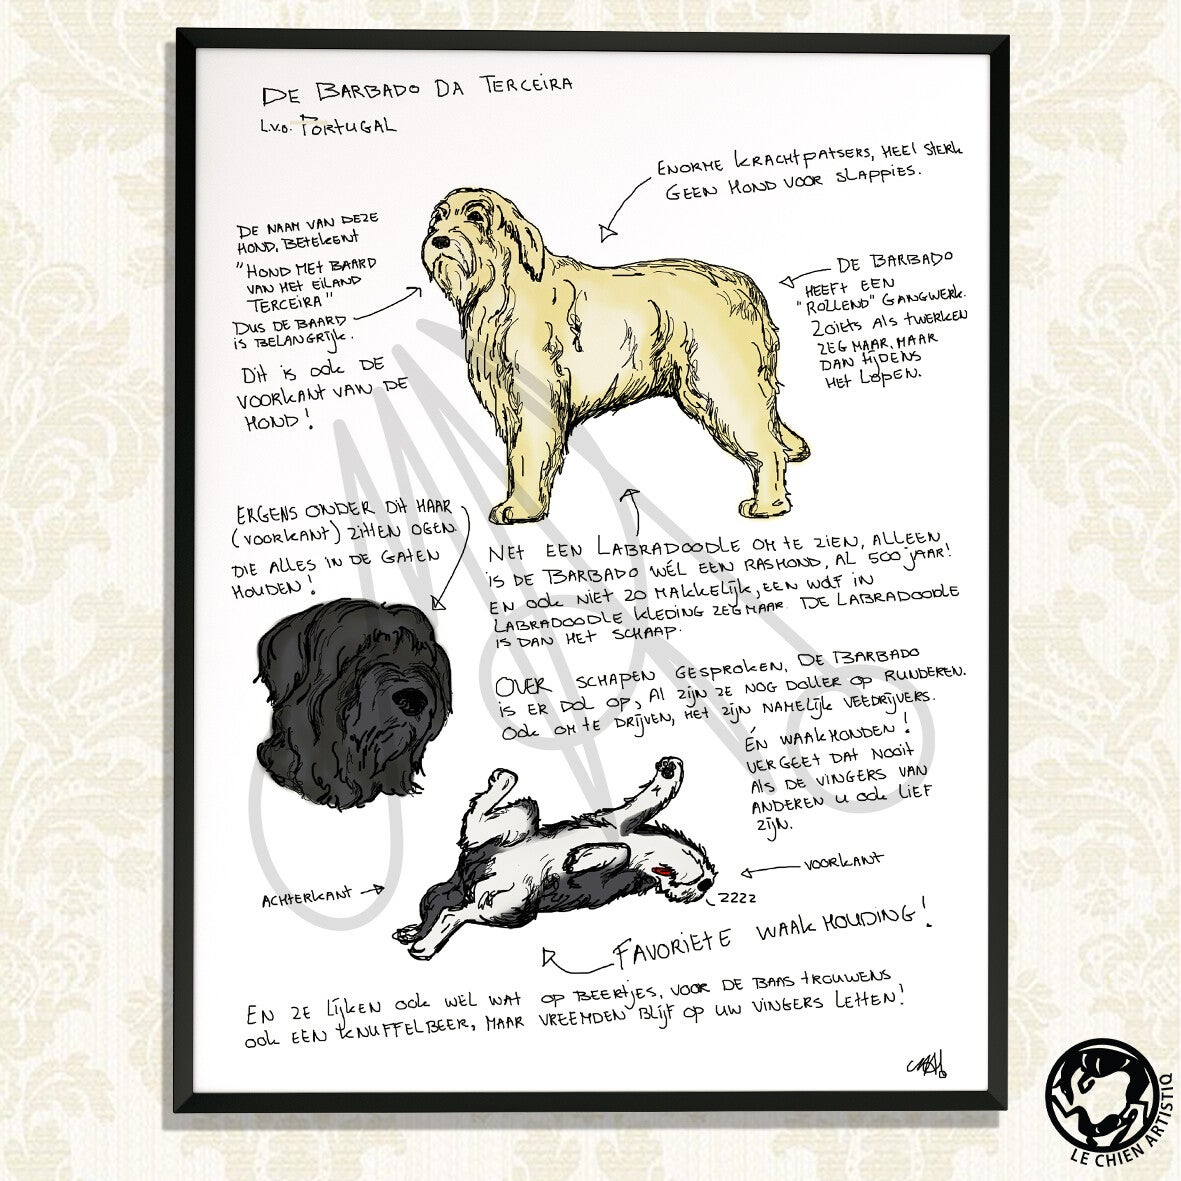 De Barbado da Terceira
L.v.o. Portugal
Enorme krachtpatsers, heel sterk
geen hond voor slappies.
De naam van deze
hond, betekent
"Hond met baard
van het eiland
Terceira"
Dus de baard
is belangrijk.
Dit is ook de
voorkant van de
hond!
De Barbado
heeft een
"rollend" gangwerk.
Zoiets als twerken
zeg maar, maar
dan tijdens
het lopen.
Ergens onder dit haar
(voorkant) zitten ogen
die alles in de gaten
houden!
Net een Labradoodle om te zien, alleen
is de Barbado wél een rashond, al 500 jaar!
En ook niet zo makkelijk, een wolf in
Labradoodle kleding zeg maar. De Labradoodle
is dan het schaap.
Over schapen gesproken, de Barbado
is er dol op, al zijn ze nog doller op runderen.
Ook om te drijven, het zijn namelijk veedrijvers.
Én waakhonden!
Vergeet dat nooit
als de vingers van
anderen u ook lief
zijn.
Achterkant
Voorkant
zzzz
Favoriete waakhouding!
En ze lijken ook wel wat op beertjes, voor de baas trouwens
ook een knuffelbeer, maar vreemden blijf op uw vingers letten!
LE CHIEN ARTISTIQ